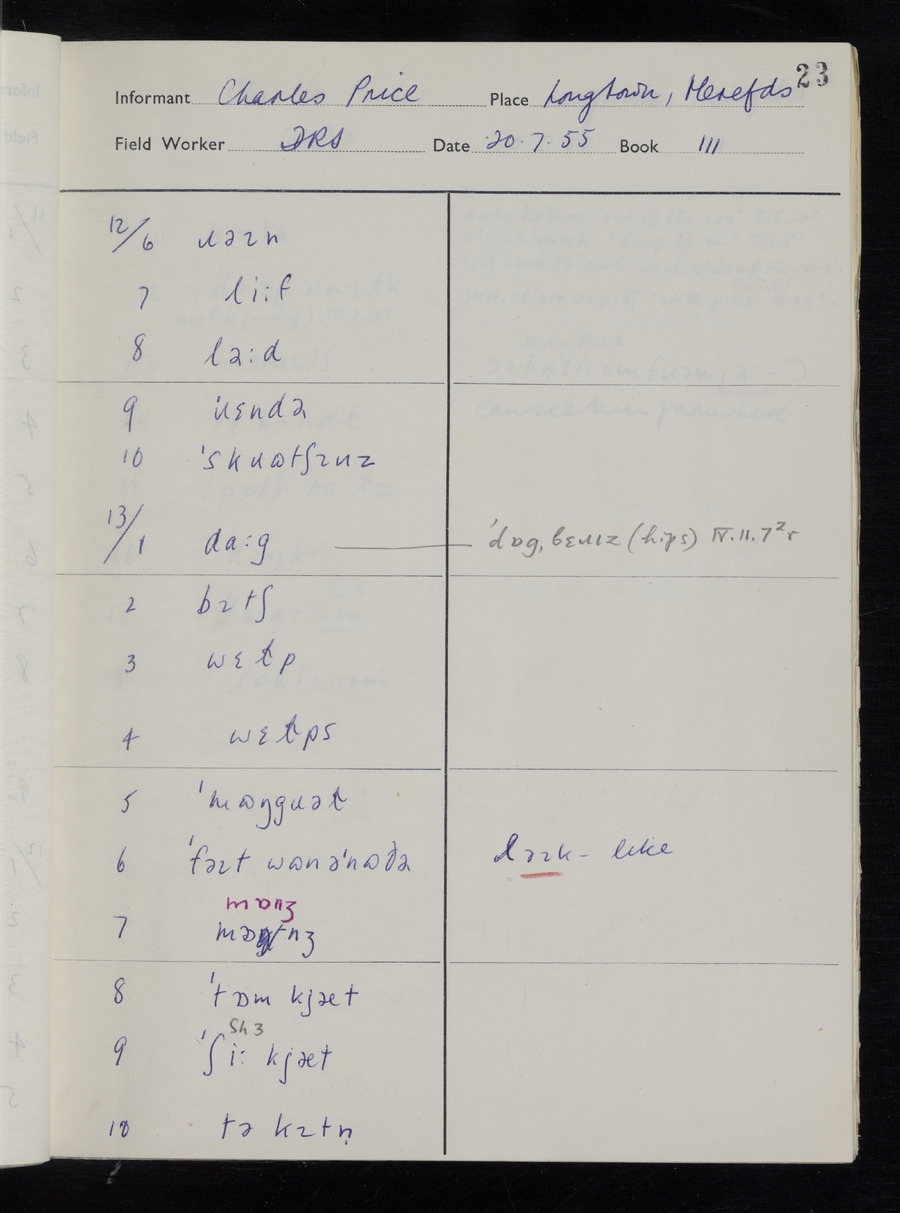 23
Informant Charles Price Place Longtown, Herefds
Field Worker DRS Date 20.7.55 Book III
12/6 ɹəɪn
7 li:f
8 lə:d
9 ˈɹɛndə
10 ˈskɹɒtʃɪɹɪz
13/1 da:g ˈdɒg,bɛɹɪz (hips) IV.11.7²r
2 bɪtʃ
3 wɛɫp
4 wɛɫps
5 ˈmɒŋgɹəɫ
6 ˈfəɪt wɒn əˈnɒðə ləɪk - like
mɒnʒ
7
8 ˈtɒm kjæt
Sh 3
9 ˈʃi: kjæt
10 tə kɪtn̩